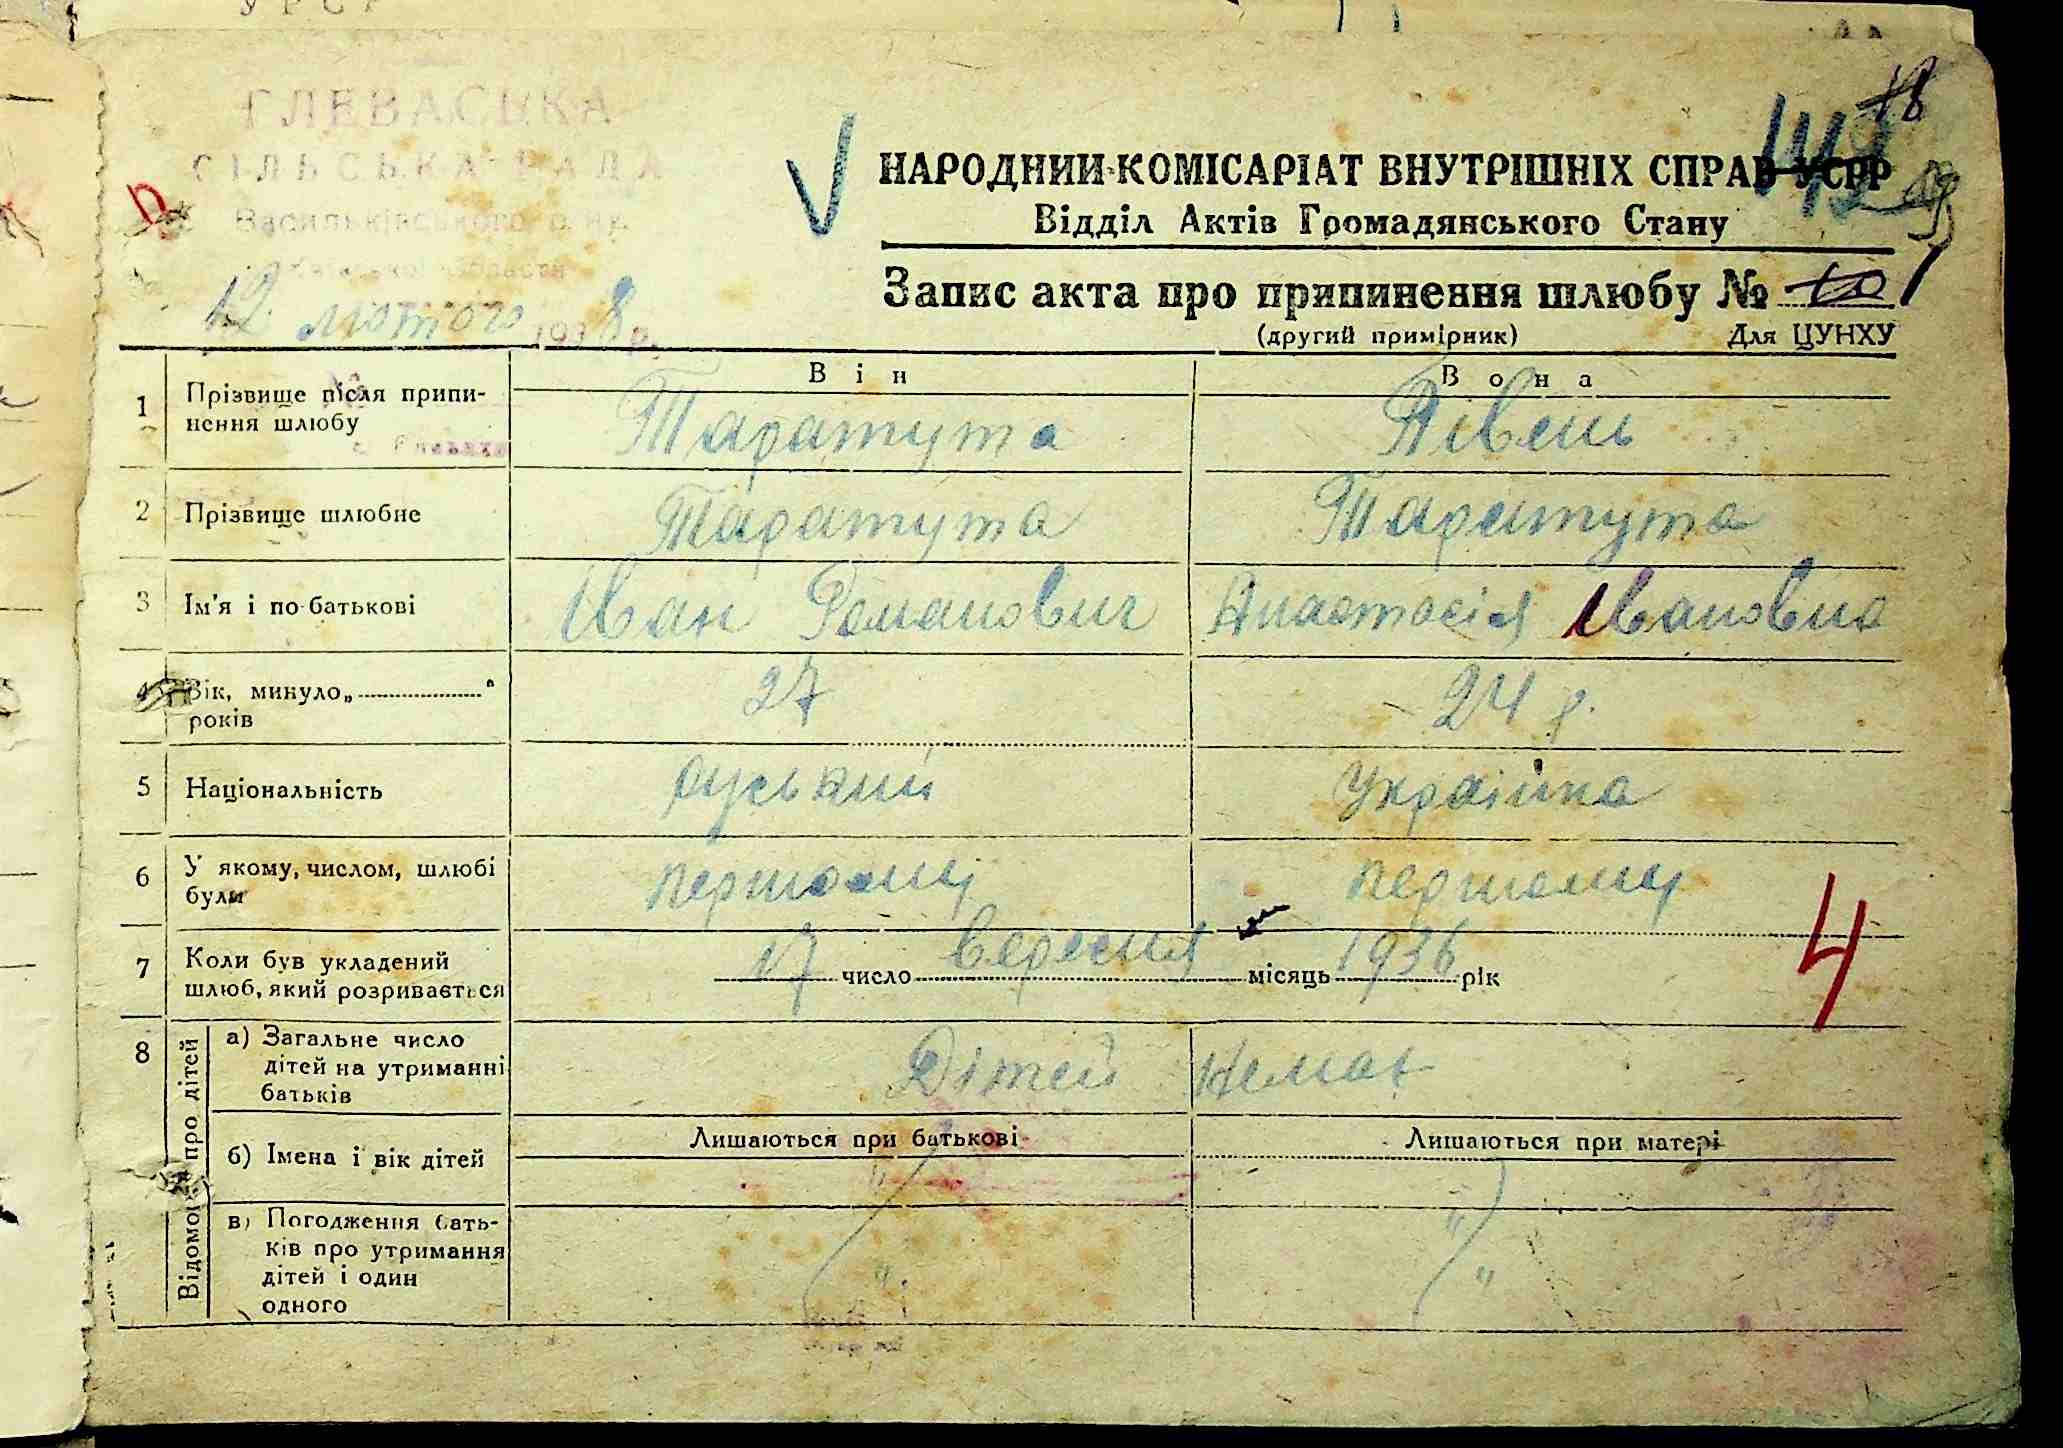 ГЛЕВАСЬКА
СІЛЬСЬКА РАДА
Васильківського р-ну
12 лютого 1938 р.
НАРОДНИЙ КОМІСАРІАТ ВНУТРІШНІХ СПРАВ УСРР
Відділ Актів Громадянського Стану
Запис акта про припинення шлюбу № 1
(другий примірник) Для ЦУНХУ
Він Вона
1 Прізвище після припи-
нення шлюбу Таратута Півень
2 Прізвище шлюбне Таратута Таратута
3 Ім'я і по-батькові Іван Романович Анастасія Івановна
4 Вік, минуло „ “
років 27 24 р.
5 Національність руський Українка
6 У якому, числом, шлюбі
були першому першому
7 Коли був укладений
шлюб, який розривається 17 число вересня місяць 1936 рік
4
8 Відомості про дітей
а) Загальне число
дітей на утриманні
батьків Дітей немає
б) Імена і вік дітей Лишаються при батькові Лишаються при матері
" "
в) Погодження бать-
ків про утримання
дітей і один
одного " "